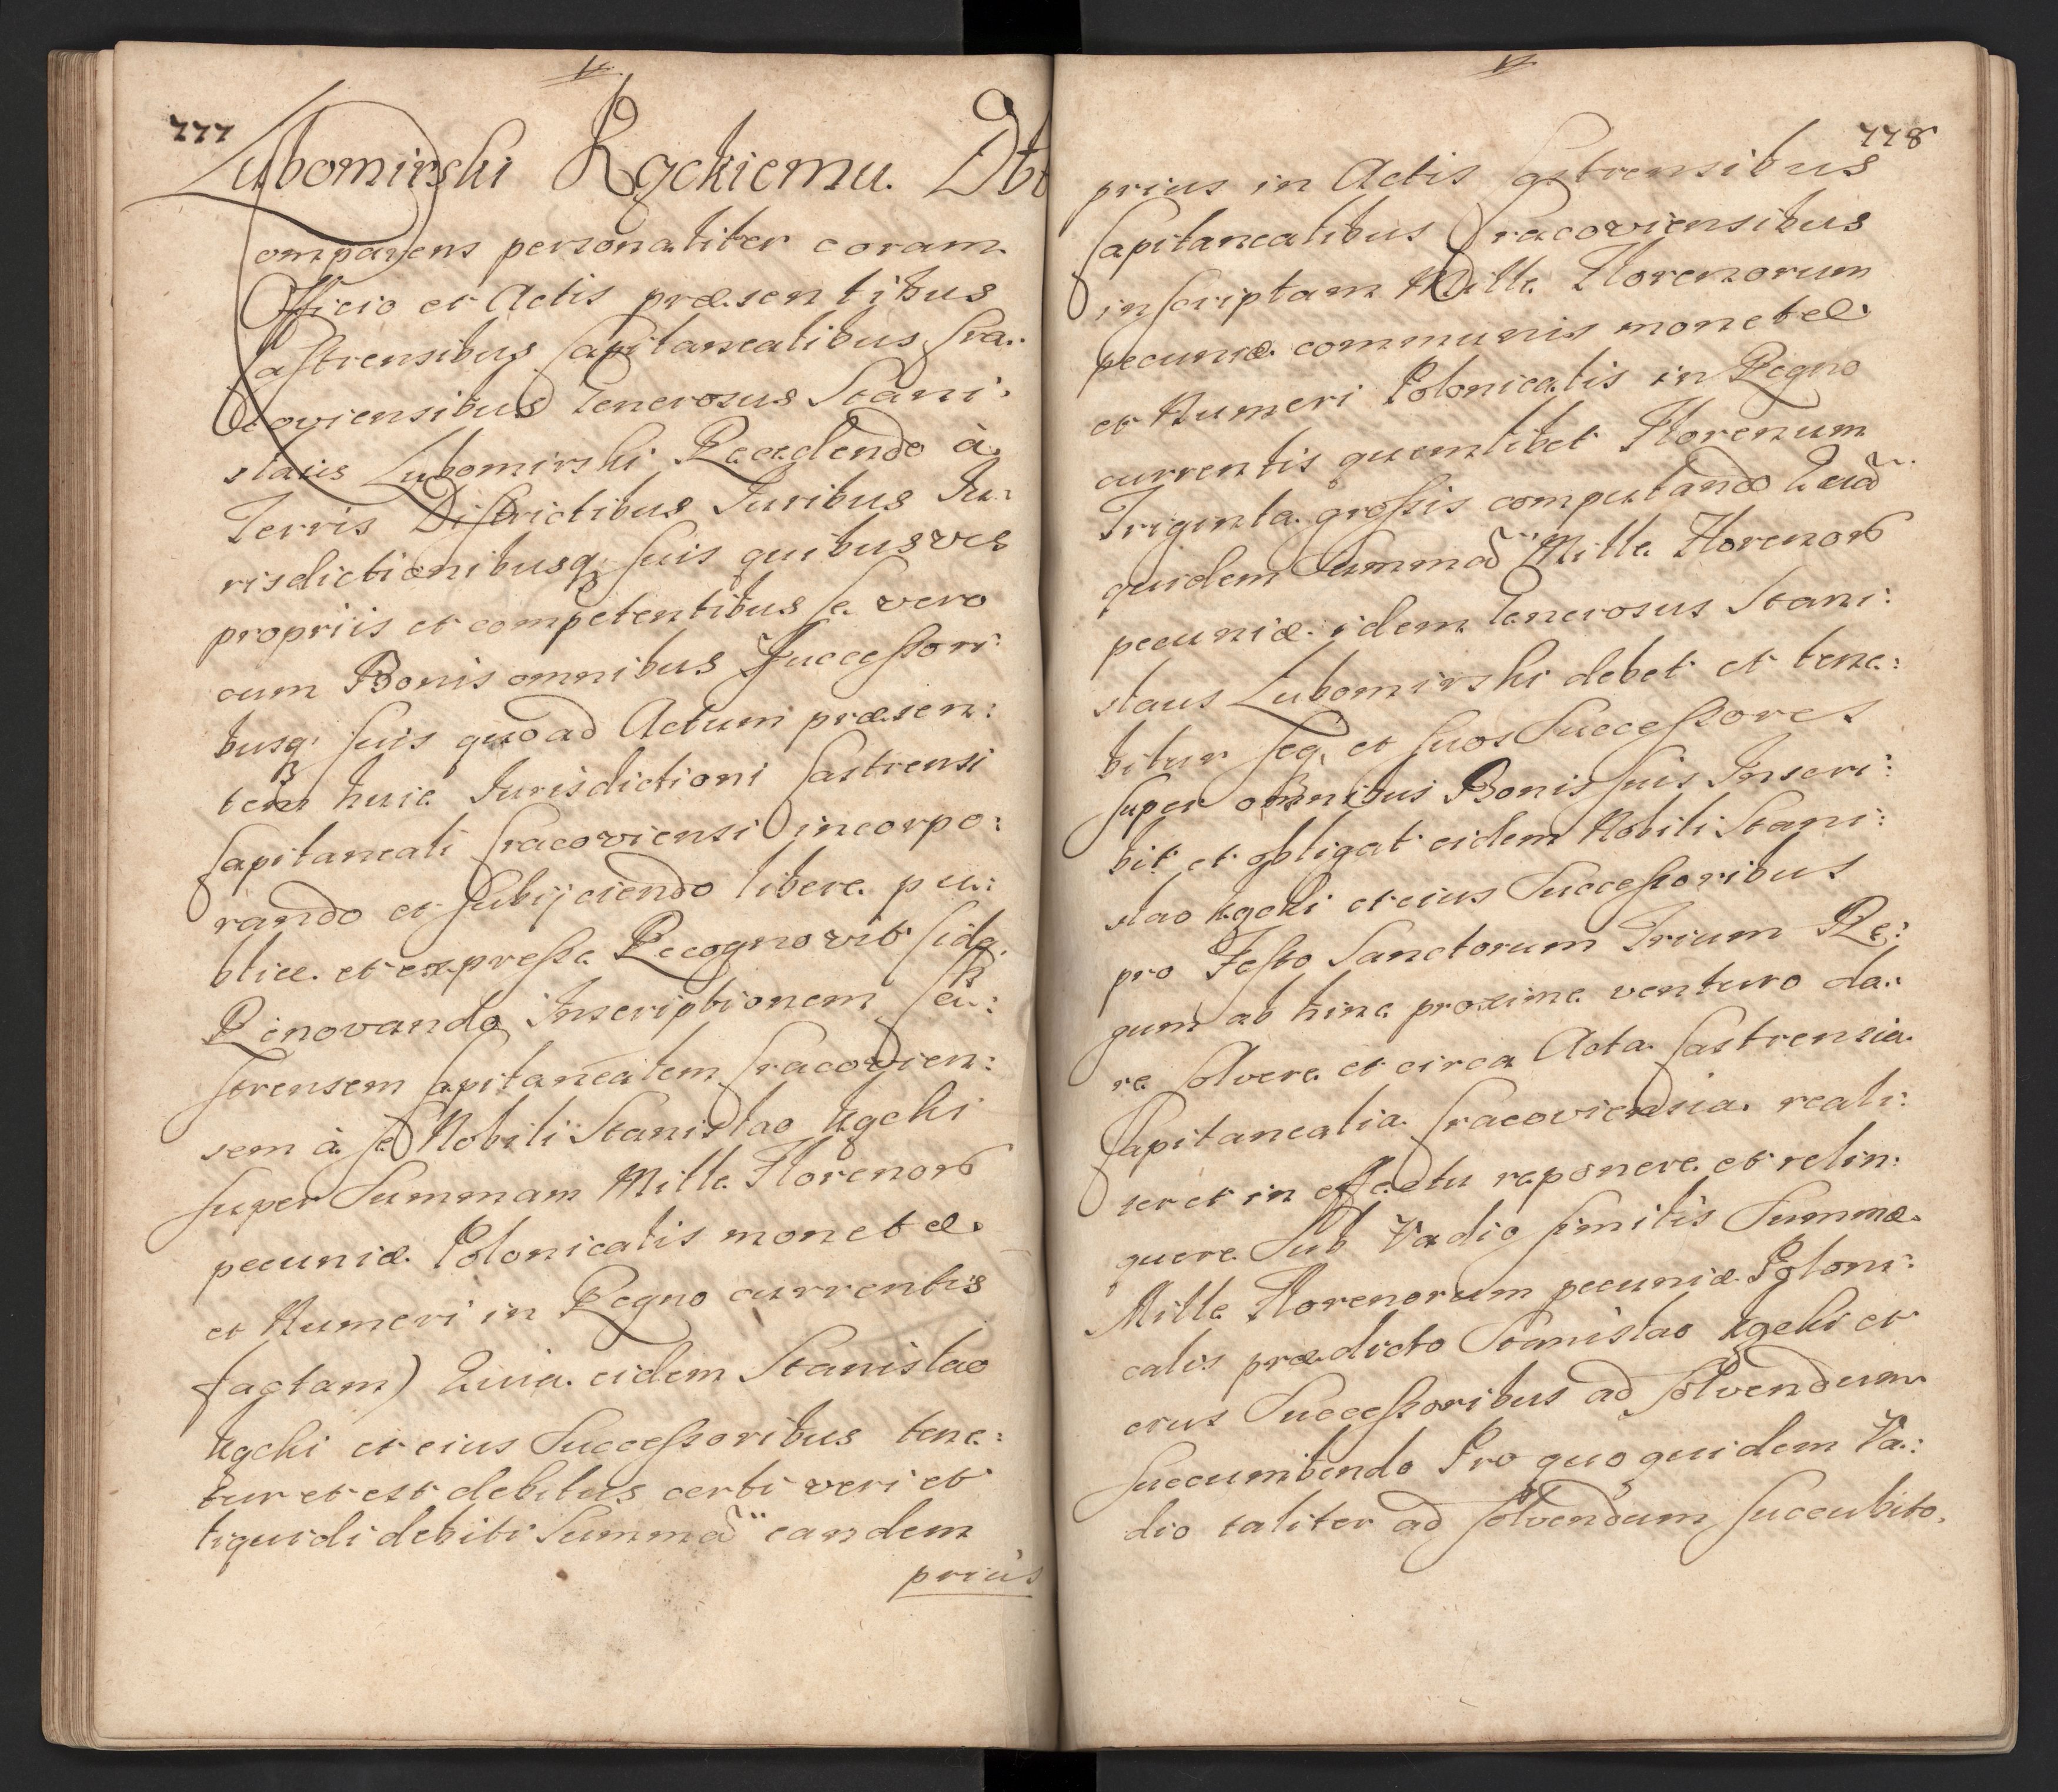 777
Lubomirski Kąckiemu. Dbt
Comparens personaliter coram
Officio et Actis præsentibus
Castrensibus Capitanealibus Cra:
coviensibus Generosus Stani:
slaus Lubomirski Recedendo à
Terris Districtibus Iuribus Iu:
risdictionibusq; suis quibusvis
propriis et competentibus se vero
cum Bonis omnibus Successori:
busq; suis quo ad Actum præsen:
tem huic Iurisdictioni Castrensi
Capitaneali Cracoviensi incorpo:
rando et subijciendo libere pu:
blice et expresse Recognovit
Renovando Inscriptionem Ca:
strensem Capitanealem Cracovien:
sem à se Nobili Stanislao Kącki
super Summam Mille Florenorum
pecuniæ Polonicalis monetæ
et Numeri in Regno currentis
factam) Quia eidem Stanislao
Kącki et eius Successoribus tene:
tur et est debitus certi veri et
liquidi debiti Summã eandem
prius
778
prius in Actis Castrensibus
Capitanealibus Cracoviensibus
inscriptam Mille Florenorum
pecuniæ communis monetæ
et Numeri Polonicalis in Regno
currentis quemlibet Florenum
Triginta grossis computando Quã
quidem Summã Mille Florenorum
pecuniæ idem Generosus Stani:
slaus Lubomirski debet et tene:
bitur seq; et suos Successores
super omnibus Bonis suis Inscri:
bit et obligat eidem Nobili Stani:
slao Kącki et eius Successoribus
pro Festo Sanctorum Trium Re:
gum ab hinc proxime venturo da:
re solvere et circa Acta Castrensia
Capitanealia Cracoviensia reali:
ter et in effectu reponere et relin:
quere Sub Vadio similis Summæ
Mille Florenorum pecuniæ Poloni:
calis prædicto Stanislao Kącki et
eius Successoribus ad solvendum
succumbendo Pro quo quidem Va:
dio taliter ad solvendum succubito